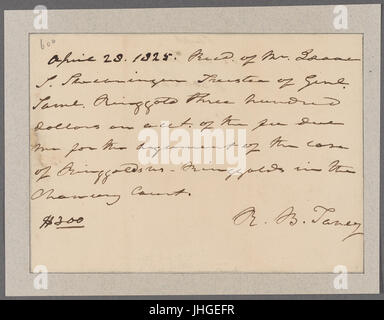 600
April 23. 1825. Recd. of Mr. Isaac
S. Trustee of Genl.
Saml. Ringgold three hundred
dollars on acct. of the fee due
me for the argument of the case
of Ringgold vs. Ringgolds in the
Chancery Court.
$300
R. B. Taney
alamy
Image ID: JHGEFR
www.alamy.com